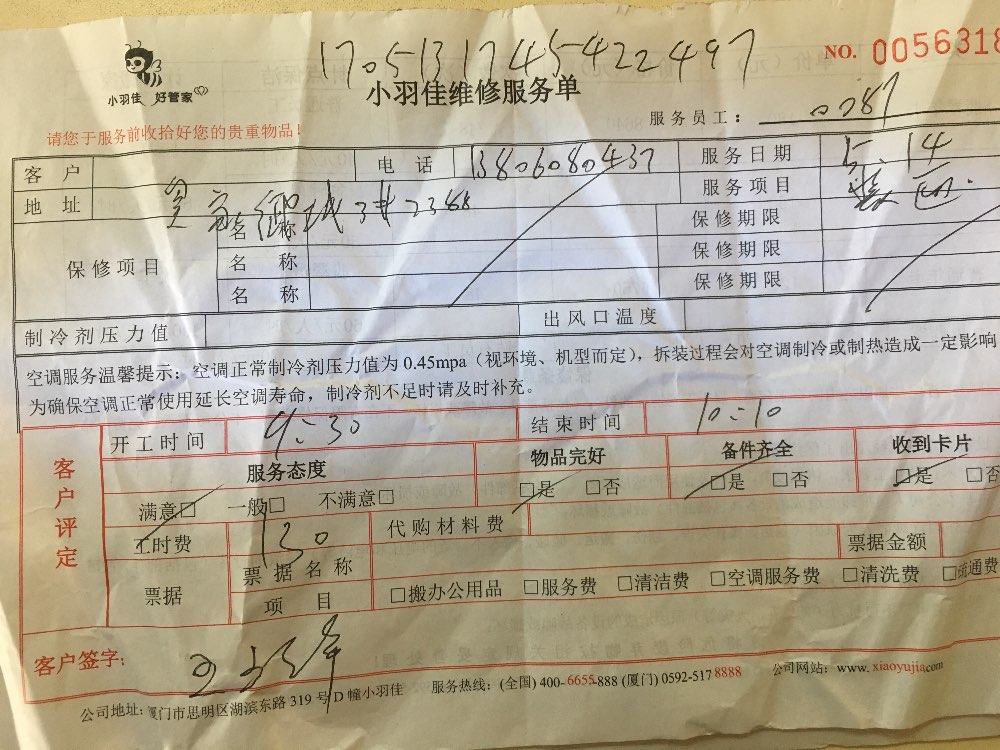 1705131745422497
NO. 0056318
小羽佳 好管家
小羽佳维修服务单
请您于服务前收拾好您的贵重物品!
服务员工: 0087
客户 电话 13806080437 服务日期 5.14
地址 御城3#2388 服务项目
保修项目 名称 保修期限
名称 保修期限
名称 保修期限
制冷剂压力值 出风口温度
空调服务温馨提示:空调正常制冷剂压力值为 0.45mpa(视环境、机型而定),拆装过程会对空调制冷或制热造成一定影响
为确保空调正常使用延长空调寿命,制冷剂不足时请及时补充。
客户评定
开工时间 9:30 结束时间 10:10
服务态度 物品完好 备件齐全 收到卡片
满意□ 一般□ 不满意□ □是 □否 □是 □否 □是 □否
工时费 130 代购材料费
票据 票据名称 票据金额
项目 □搬办公用品 □服务费 □清洁费 □空调服务费 □清洗费 □疏通费
客户签字:
公司地址:厦门市思明区湖滨东路 319 号 D 幢小羽佳 服务热线:(全国) 400-6655-888 (厦门) 0592-5178888 公司网站:www.xiaoyujia.com